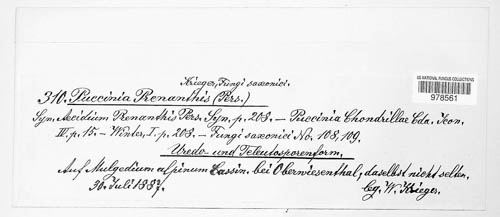 Krieger, Fungi saxonici.
US NATIONAL FUNGUS COLLECTIONS
978561
310. Puccinia Prenanthis (Pers.)
Syn. Aecidium Prenanthis Pers. Syn. p. 208. — Puccinia Chondrillae Cda. Icon.
III, p. 15. — Winter, I. p. 208. — Fungi saxonici No. 108, 109.
Uredo- und Teleutosporenform.
Auf Mulgedium alpinum Cassin. bei Oberwiesenthal, daselbst nicht selten.
30. Juli 1887. lg. W. Krieger.